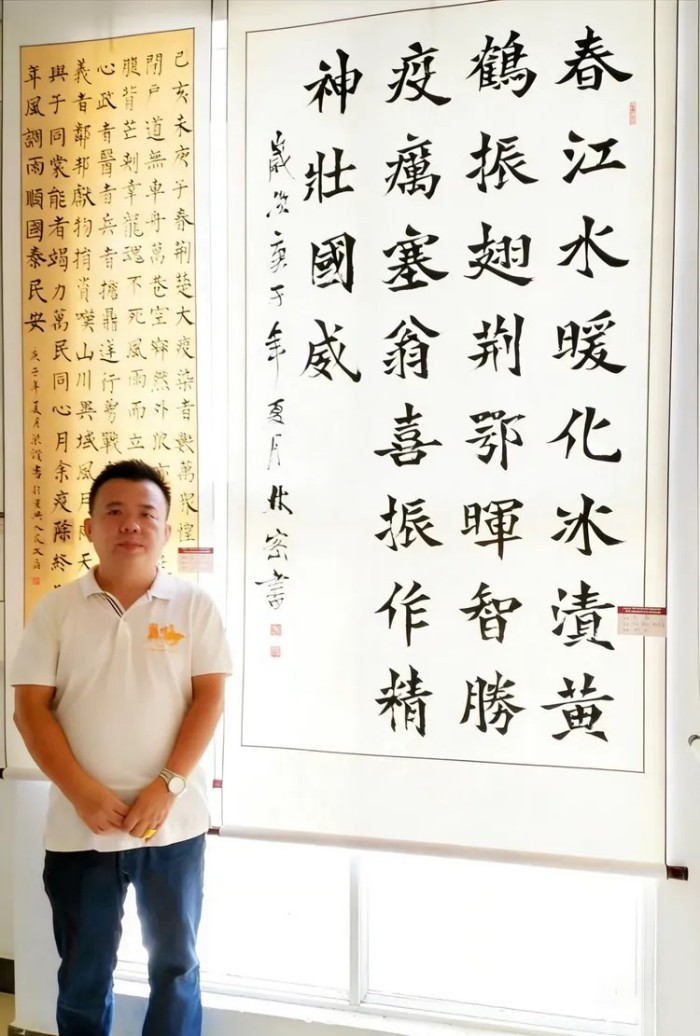 春江水暖化冰漬黄
鶴振翅荆鄂暉智勝
疫癘塞翁喜振作精
神壯國威
歲次庚子年夏月林密書
己亥末庚子春荆楚大疫染者數萬眾惶
閉戶道無車舟萬巷空寂然外
腹背芒刺幸龍魂不死風雨而立
心武者醫者兵者擔鼎逆行勇戰
義者鄰邦獻物捐資嘆山川異域風月同天
與子同裳能者竭力萬民同心月余疫除終
年風調雨順國泰民安
庚子年夏月梁